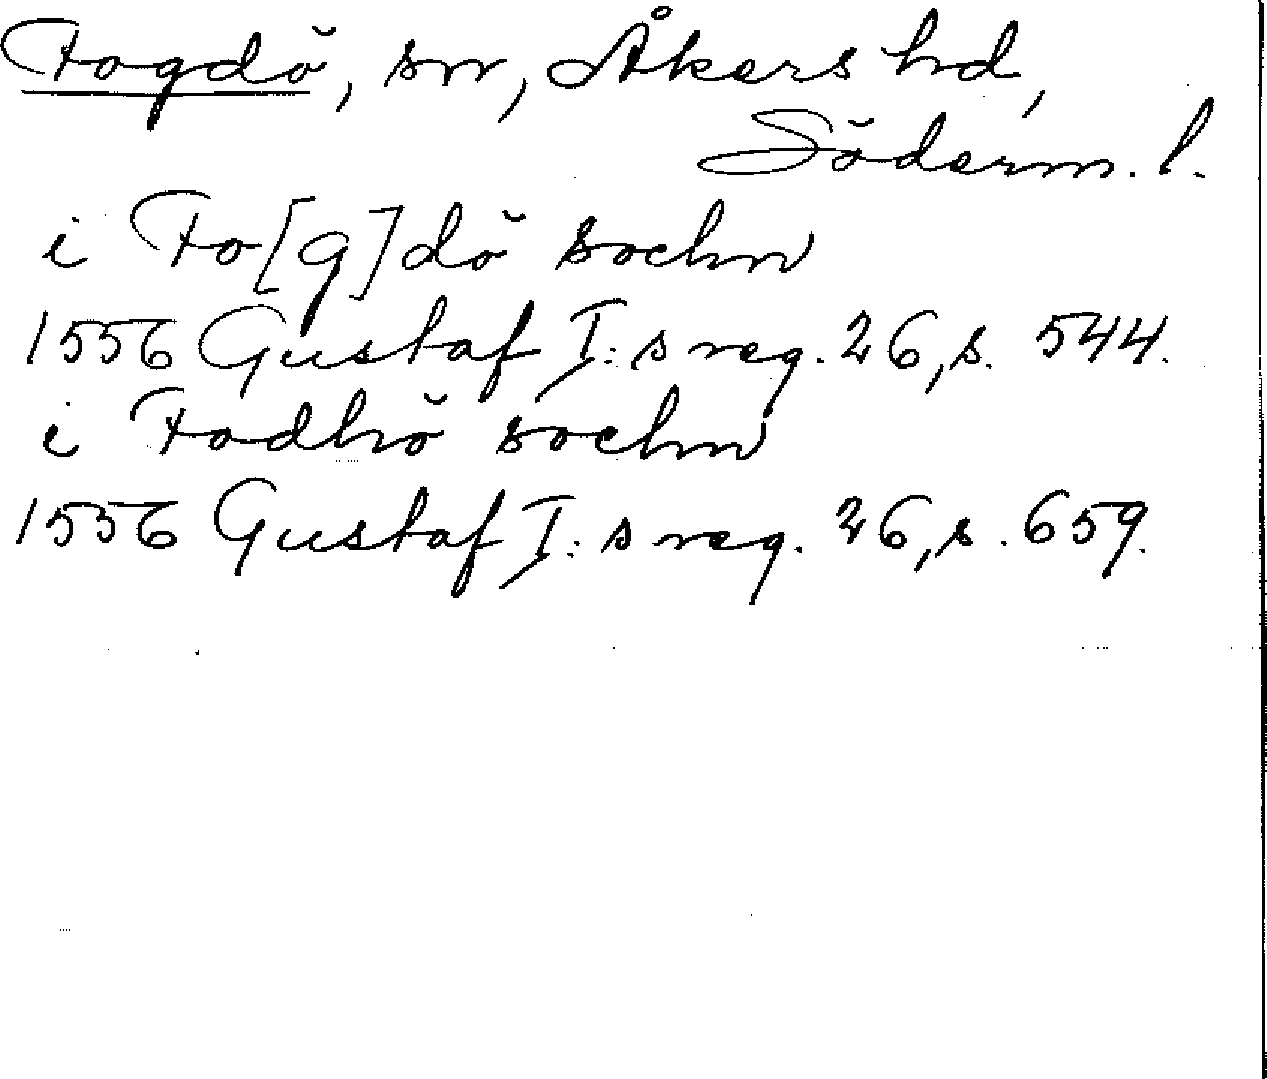 Fogdö, sn, Åkers hd,
Söderm. l.
i Fo[g]dö sochn
1556 Gustaf I:s reg. 26, s. 544.
i Fodhö sochn
1556 Gustaf I:s reg. 26, s. 659.